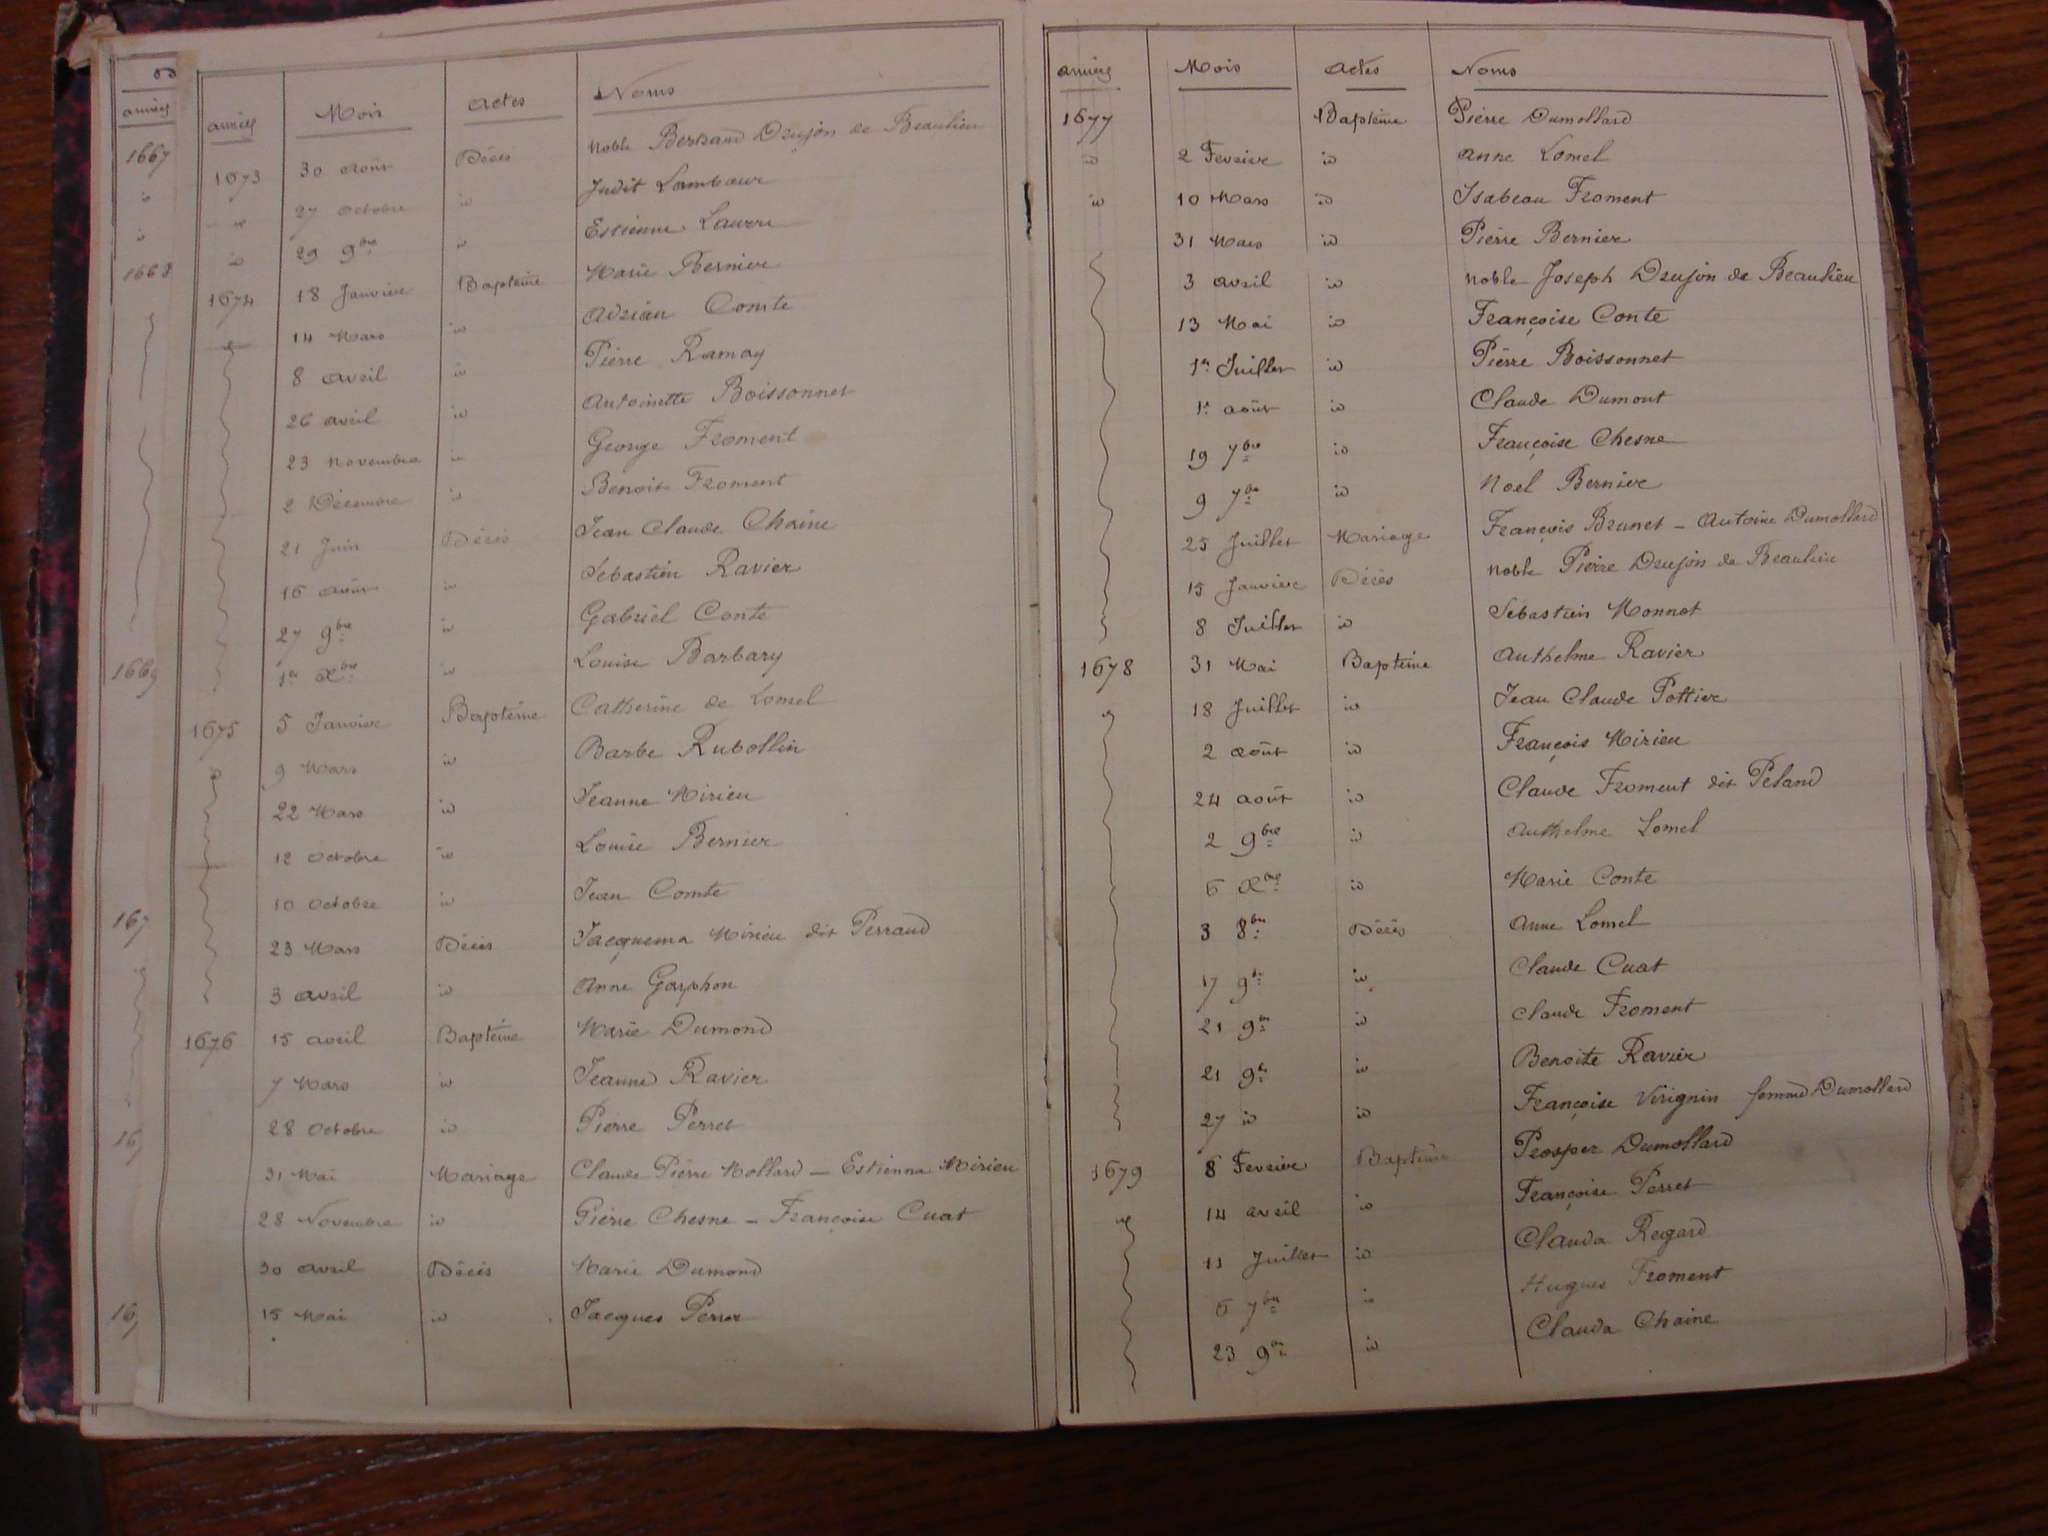 années Mois Actes Noms
1673 30 août Décès Noble Bertrand Drujon de Beaulieu
id 27 octobre id Judit Lambœur
id 29 9bre id Estienne Laurre
1674 18 Janvier Baptême Marie Bernier
id 14 Mars id Adrian Comte
8 avril id Pierre Ramay
26 avril id Antoinette Boissonnet
23 Novembre id George Froment
2 Décembre id Benoit Froment
21 Juin Décès Jean Claude Chaine
16 août id Sébastien Ravier
27 9bre id Gabriel Conte
1er Xbre id Louise Barbary
1675 5 Janvier Baptême Catherine de Lomel
9 Mars id Barbe Rubollin
22 Mars id Jeanne Mirieu
12 octobre id Louise Bernier
10 octobre id Jean Comte
23 Mars Décès Jacquema Mirieu dit Perraud
3 avril id Anne Garphon
1676 15 avril Baptême Marie Dumond
7 Mars id Jeanne Ravier
28 octobre id Pierre Perret
31 Mai Mariage Claude Pierre Mollard – Estienna Mirieu
28 Novembre id Pierre Chesne – Françoise Cuat
30 avril Décès Marie Dumond
15 Mai id Jacques Perret
années
1667
id
id
1668
1669
167
16
16
années Mois Actes Noms
1677 Baptême Pierre Dumollard
id 2 Fevrier id Anne Lomel
id 10 Mars id Isabeau Froment
31 Mars id Pierre Bernier
3 avril id Noble Joseph Drujon de Beaulieu
13 Mai id Françoise Conte
1er Juillet id Pierre Boissonnet
1er août id Claude Dumont
19 7bre id Françoise Chesne
9 7bre id Noel Bernier
25 Juillet Mariage François Brunet – Antoine Dumollard
15 Janvier Décès Noble Pierre Drujon de Beaulieu
8 Juillet id Sébastien Monnot
1678 31 Mai Baptême Anthelme Ravier
id 18 Juillet id Jean Claude Pottier
2 août id François Mirieu
24 août id Claude Froment dit Peland
2 9bre id Anthelme Lomel
6 Xbre id Marie Conte
3 8bre Décès Anne Lomel
17 9bre id Claude Cuat
21 9bre id Claude Froment
21 9bre id Benoite Ravier
27 id id Françoise Virignin femme Dumollard
1679 8 Fevrier Baptême Prosper Dumollard
id 14 avril id Françoise Perret
11 Juillet id Clauda Regard
6 7bre id Hugues Froment
23 9bre id Clauda Chaine